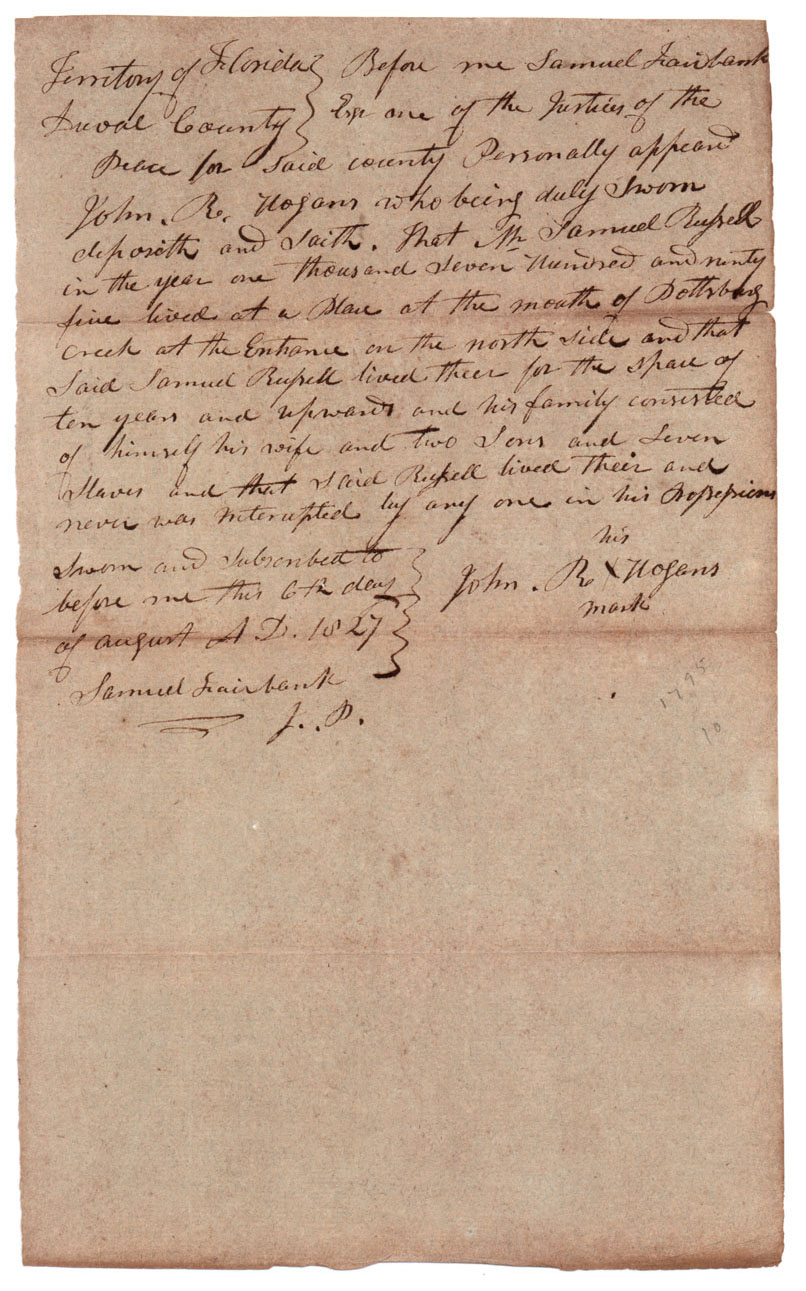 Territory of Florida } Before me Samuel Fairbank
Duval County } Esqr one of the Justices of the
Peace for said county Personally appeard
John. R. Hogans who being duly sworn
deposeth and saith. that Mr Samuel Russell
in the year one thousand seven Hundred and ninty
five lived at a Place at the mouth of Pottsburg
Creek at the Entrance on the north side and that
said Samuel Russell lived their for the space of
ten years and upwards and his family consisted
of himself his wife and two sons and seven
slaves and that said Russell lived their and
never was interupted by any one in his Possessions
his
John. R X Hogans
mark
Sworn and subscribed to
before me this 6th day
of august A D. 1827
Samuel Fairbank
J. P.
1795
10